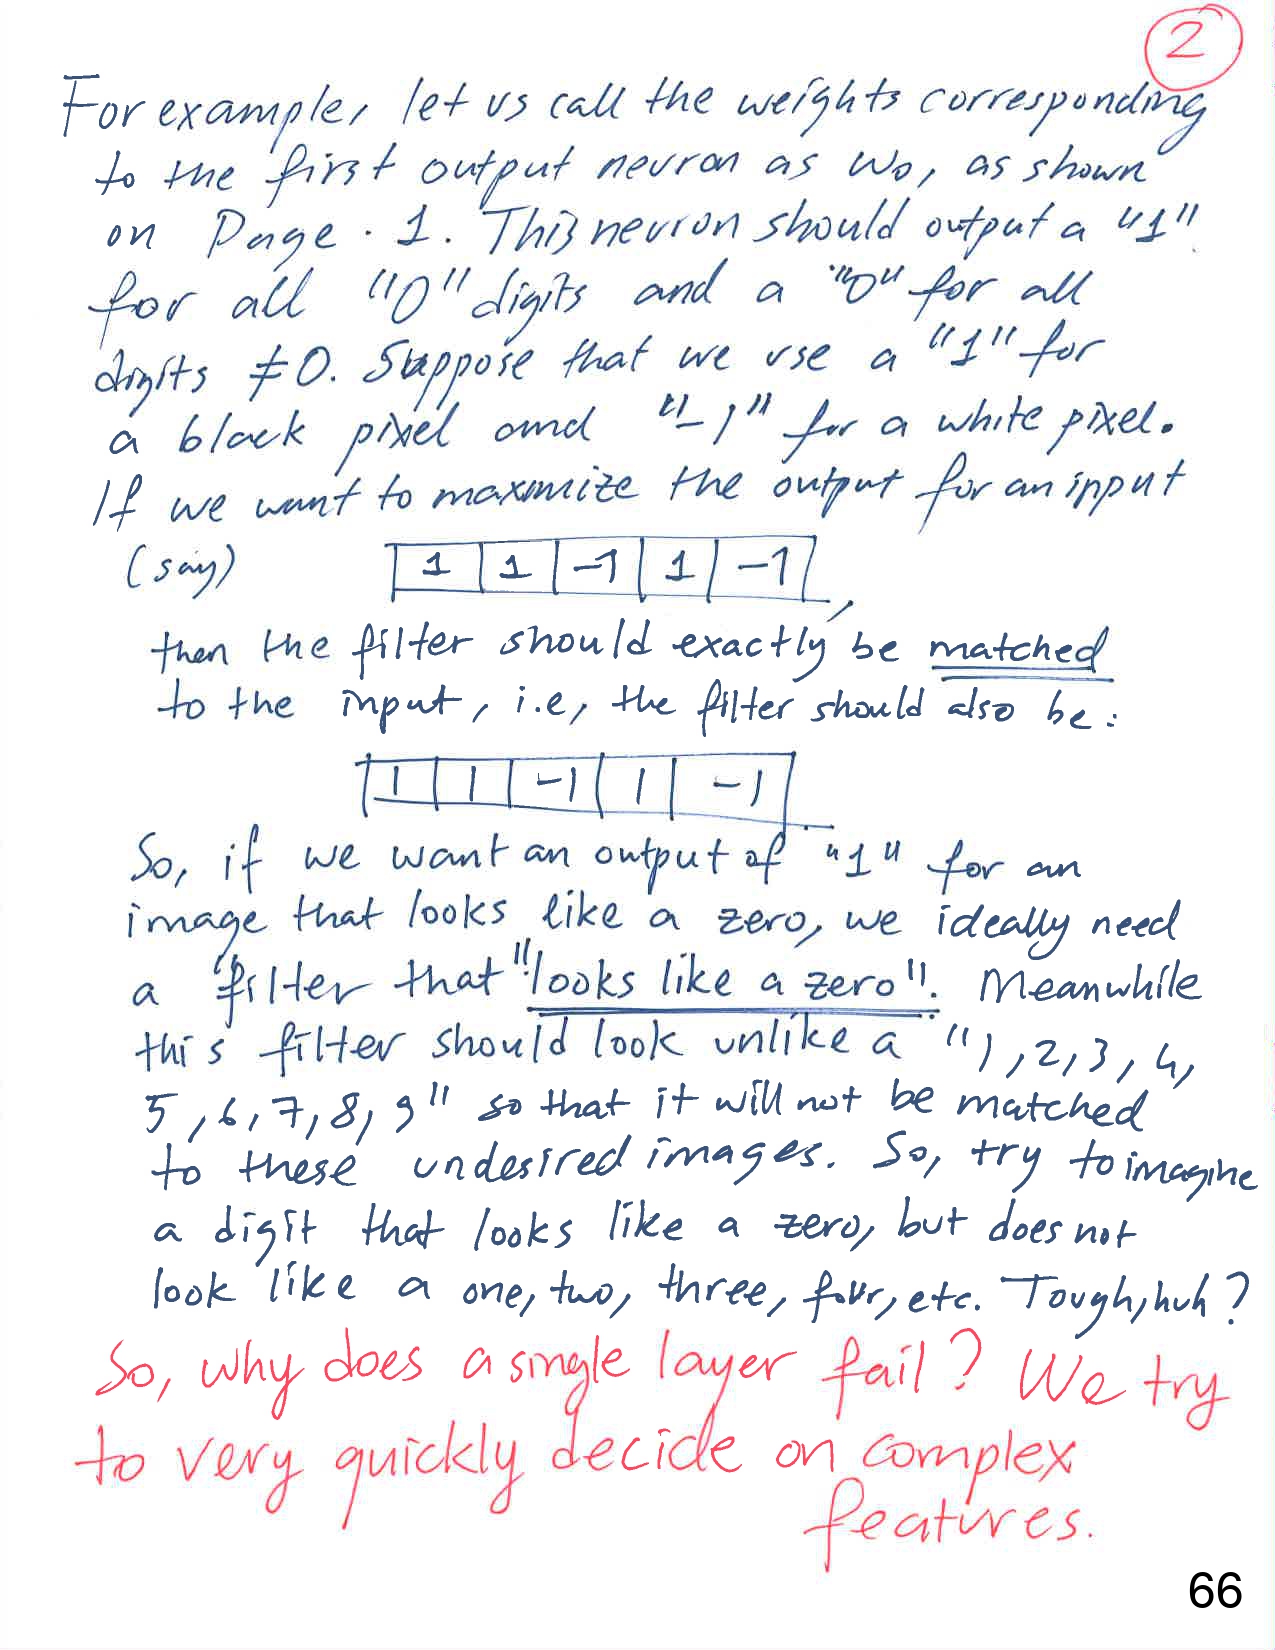 2
For example, let us call the weights corresponding
to the first output neuron as W₀, as shown
on Page . 1. This neuron should output a "1"
for all "0" digits and a "0" for all
digits ≠0. Suppose that we use a "1" for
a black pixel and "-1" for a white pixel.
If we want to maximize the output for an input
(say) 1 1 -1 1 -1 ,
then the filter should exactly be matched
to the input, i.e, the filter should also be:
1 1 -1 1 -1 .
So, if we want an output of "1" for an
image that looks like a zero, we ideally need
a filter that "looks like a zero". Meanwhile
this filter should look unlike a "1,2,3,4,
5,6,7,8,9" so that it will not be matched
to these undesired images. So, try to imagine
a digit that looks like a zero, but does not
look like a one, two, three, four, etc. Tough, huh?
So, why does a single layer fail? We try
to very quickly decide on complex
features.
66